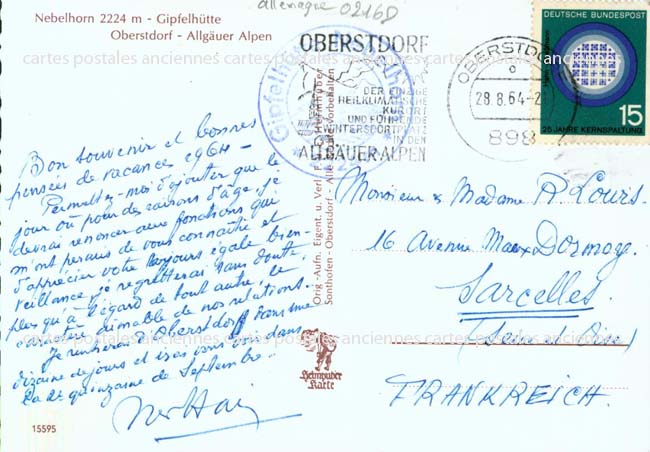 allemagne 0216D
Nebelhorn 2224 m - Gipfelhütte
Oberstdorf - Allgäuer Alpen
cartes postales anciennes cartes postales anciennes cartes postales anciennes
OBERSTDORF
DER EINZIGE
HEILKLIMATISCHE
KURORT
UND FÜHRENDE
WINTERSPORTPLATZ
IN DEN
ALLGÄUER·ALPEN
Gipfelhütte
OBERSTDORF
28.8.64-21
898
DEUTSCHE BUNDESPOST
15
25 JAHRE KERNSPALTUNG
Bon souvenir et bonnes
pensées de vacances 1964 -
Permettez-moi d'ajouter que le
jour où pour des raisons d'âge je
devrai renoncer aux fonctions que
m'ont permis de vous connaître et
d'apprécier votre toujours égale bien-
veillance, je regretterai sans doute
plus qu'à l'égard de tout autre le
caractère aimable de nos relations.
Je rentrerai d'Oberstdorf dans une
dizaine de jours et irai vous voir dans
la 2e quinzaine de Septembre.
Orig.-Aufn. Eigent. u. Verl. F. Heimhuber
Sonthofen - Oberstdorf - Alle Rechte vorbehalten
Heimhuber
Karte
Monsieur & Madame R Louis.
16 Avenue Marx Dormoy.
Sarcelles.
(Seine et Oise)
FRANKREICH.
cartes postales anciennes cartes postales anciennes cartes postales anciennes
15595